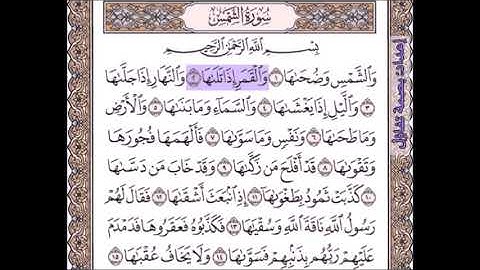 سُورَةُ الشَّمْسِ
بِسْمِ اللَّهِ الرَّحْمَٰنِ الرَّحِيمِ
وَالشَّمْسِ وَضُحَىٰهَا ١ وَالْقَمَرِ إِذَا تَلَىٰهَا ٢ وَالنَّهَارِ إِذَا جَلَّىٰهَا
٣ وَالَّيْلِ إِذَا يَغْشَىٰهَا ٤ وَالسَّمَاءِ وَمَا بَنَىٰهَا ٥ وَالْأَرْضِ
وَمَا طَحَىٰهَا ٦ وَنَفْسٍ وَمَا سَوَّىٰهَا ٧ فَأَلْهَمَهَا فُجُورَهَا
وَتَقْوَىٰهَا ٨ قَدْ أَفْلَحَ مَن زَكَّىٰهَا ٩ وَقَدْ خَابَ مَن دَسَّىٰهَا
١٠ كَذَّبَتْ ثَمُودُ بِطَغْوَىٰهَا ١١ إِذِ انۢبَعَثَ أَشْقَىٰهَا ١٢ فَقَالَ لَهُمْ
رَسُولُ اللَّهِ نَاقَةَ اللَّهِ وَسُقْيَٰهَا ١٣ فَكَذَّبُوهُ فَعَقَرُوهَا فَدَمْدَمَ
عَلَيْهِمْ رَبُّهُم بِذَنۢبِهِمْ فَسَوَّىٰهَا ١٤ وَلَا يَخَافُ عُقْبَٰهَا ١٥
إهداءات بصمة تفاؤل